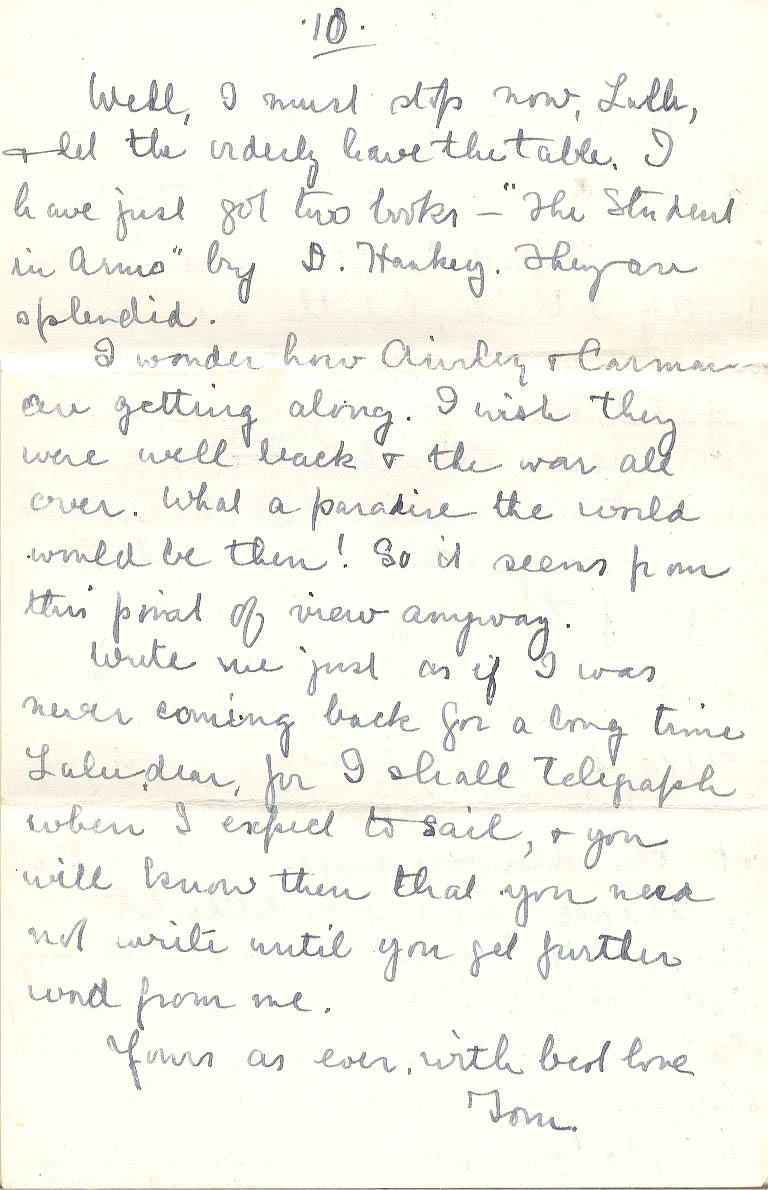 ·10·
Well, I must stop now, Lulu,
& let the orderly have the table. I
have just got two books – "The Student
in Arms" by D. Hankey. They are
splendid.
I wonder how Ainsley & Carman
are getting along. I wish they
were well back & the war all
over. What a paradise the world
would be then! So it seems from
this point of view anyway.
Write me just as if I was
never coming back for a long time
Lulu dear, for I shall telegraph
when I expect to sail, & you
will know then that you need
not write until you get further
word from me.
Yours as ever, with best love
Tom.